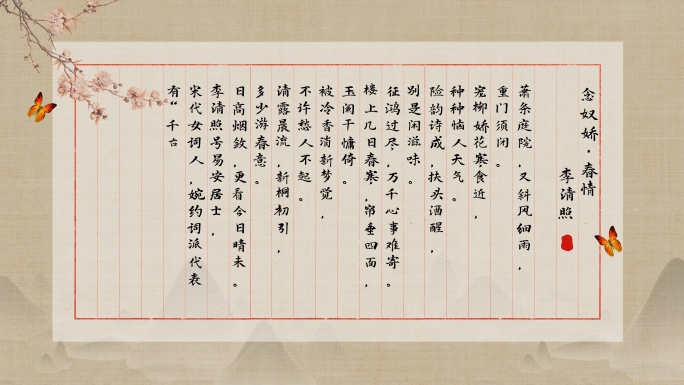 念奴娇·春情
李清照
萧条庭院，又斜风细雨，
重门须闭。
宠柳娇花寒食近，
种种恼人天气。
险韵诗成，扶头酒醒，
别是闲滋味。
征鸿过尽，万千心事难寄。
楼上几日春寒，帘垂四面，
玉阑干慵倚。
被冷香消新梦觉，
不许愁人不起。
清露晨流，新桐初引，
多少游春意。
日高烟敛，更看今日晴未。
李清照号易安居士，
宋代女词人，婉约词派代表
有“千古